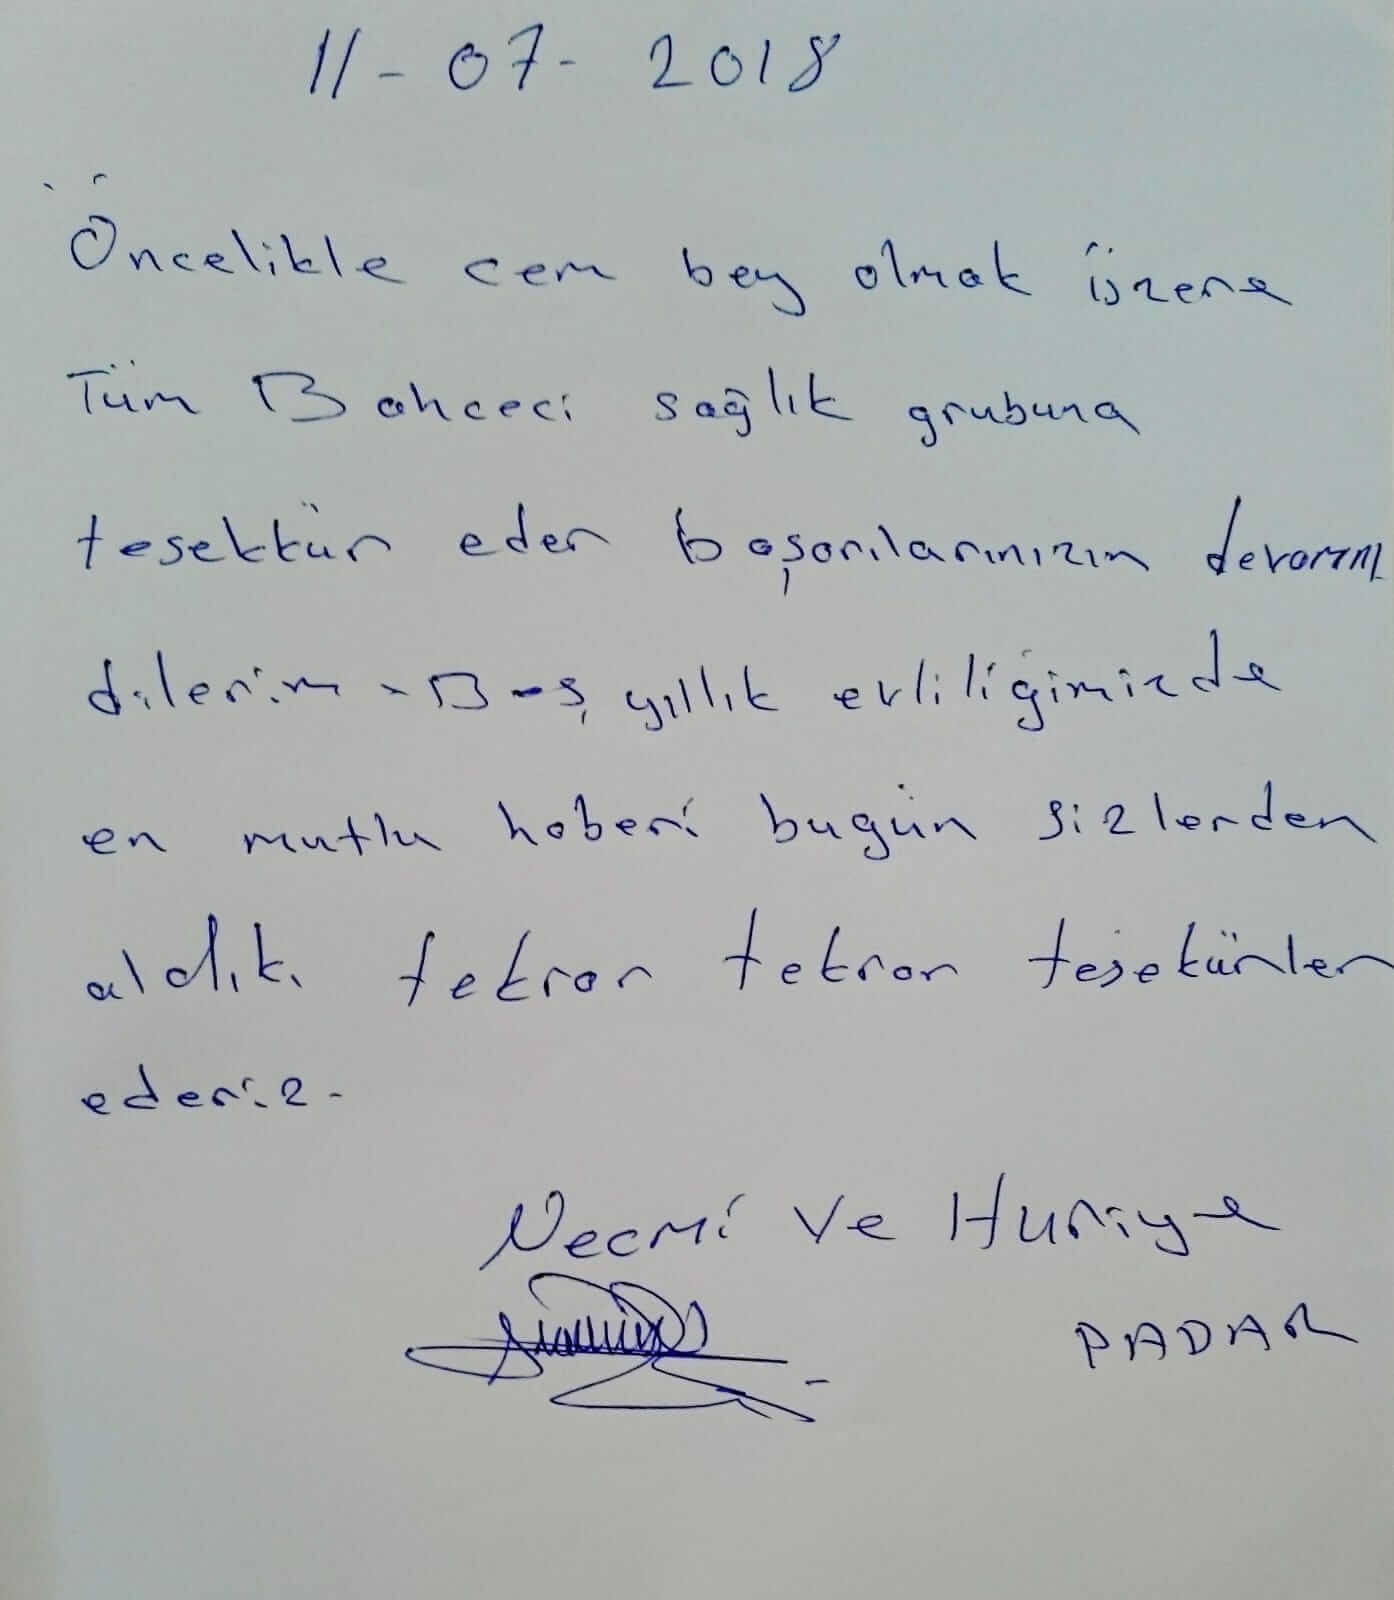 11-07-2018
Öncelikle cem bey olmak üzere
Tüm Bahceci sağlık grubuna
tesekkür eder başarılarınızın devamını
dilerim. yıllık evliliğimizde
en mutlu haberi bugün sizlerden
aldık. tekrar tekrar teşekürler
ederiz-
Necmi ve Huriye
PADAR